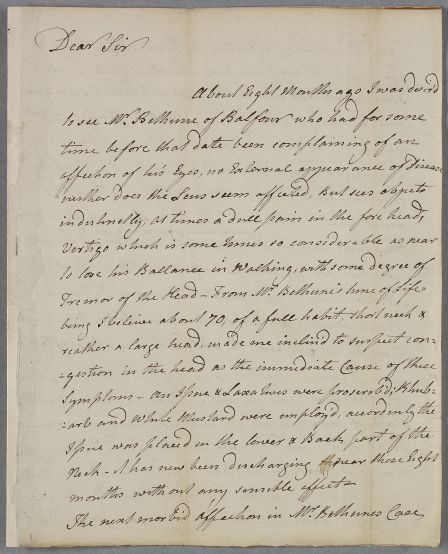 Dear Sir
About Eight Months ago I was desird
to see Mr. Bethune of Balfour who had for some
time before that date been complaining of an
affection of his Eyes, no External appearance of Disease
neither does the Lens seem affected, But sees objects
indistinctly, at times a dull pain in the fore head,
Vertigo which is some times so considerable as near
to lose his Ballance in Walking, with some degree of
Tremor of the Head - From Mr. Bethune's time of Life
being I beleive about 70, of a full habit short neck &
reather a large head, made me inclind to suspect con-
-gestion in the head as the immediate Cause of these
Symptoms - An Issue & Laxatives were proscribd, Rhub-
-arb and White Mustard were employd, accordingly the
Issue was placed in the lower & Back part of the
Neck - it has now been discharging near these Eight
months without any sensible effect -
The next morbid affection in Mr. Bethunes Case